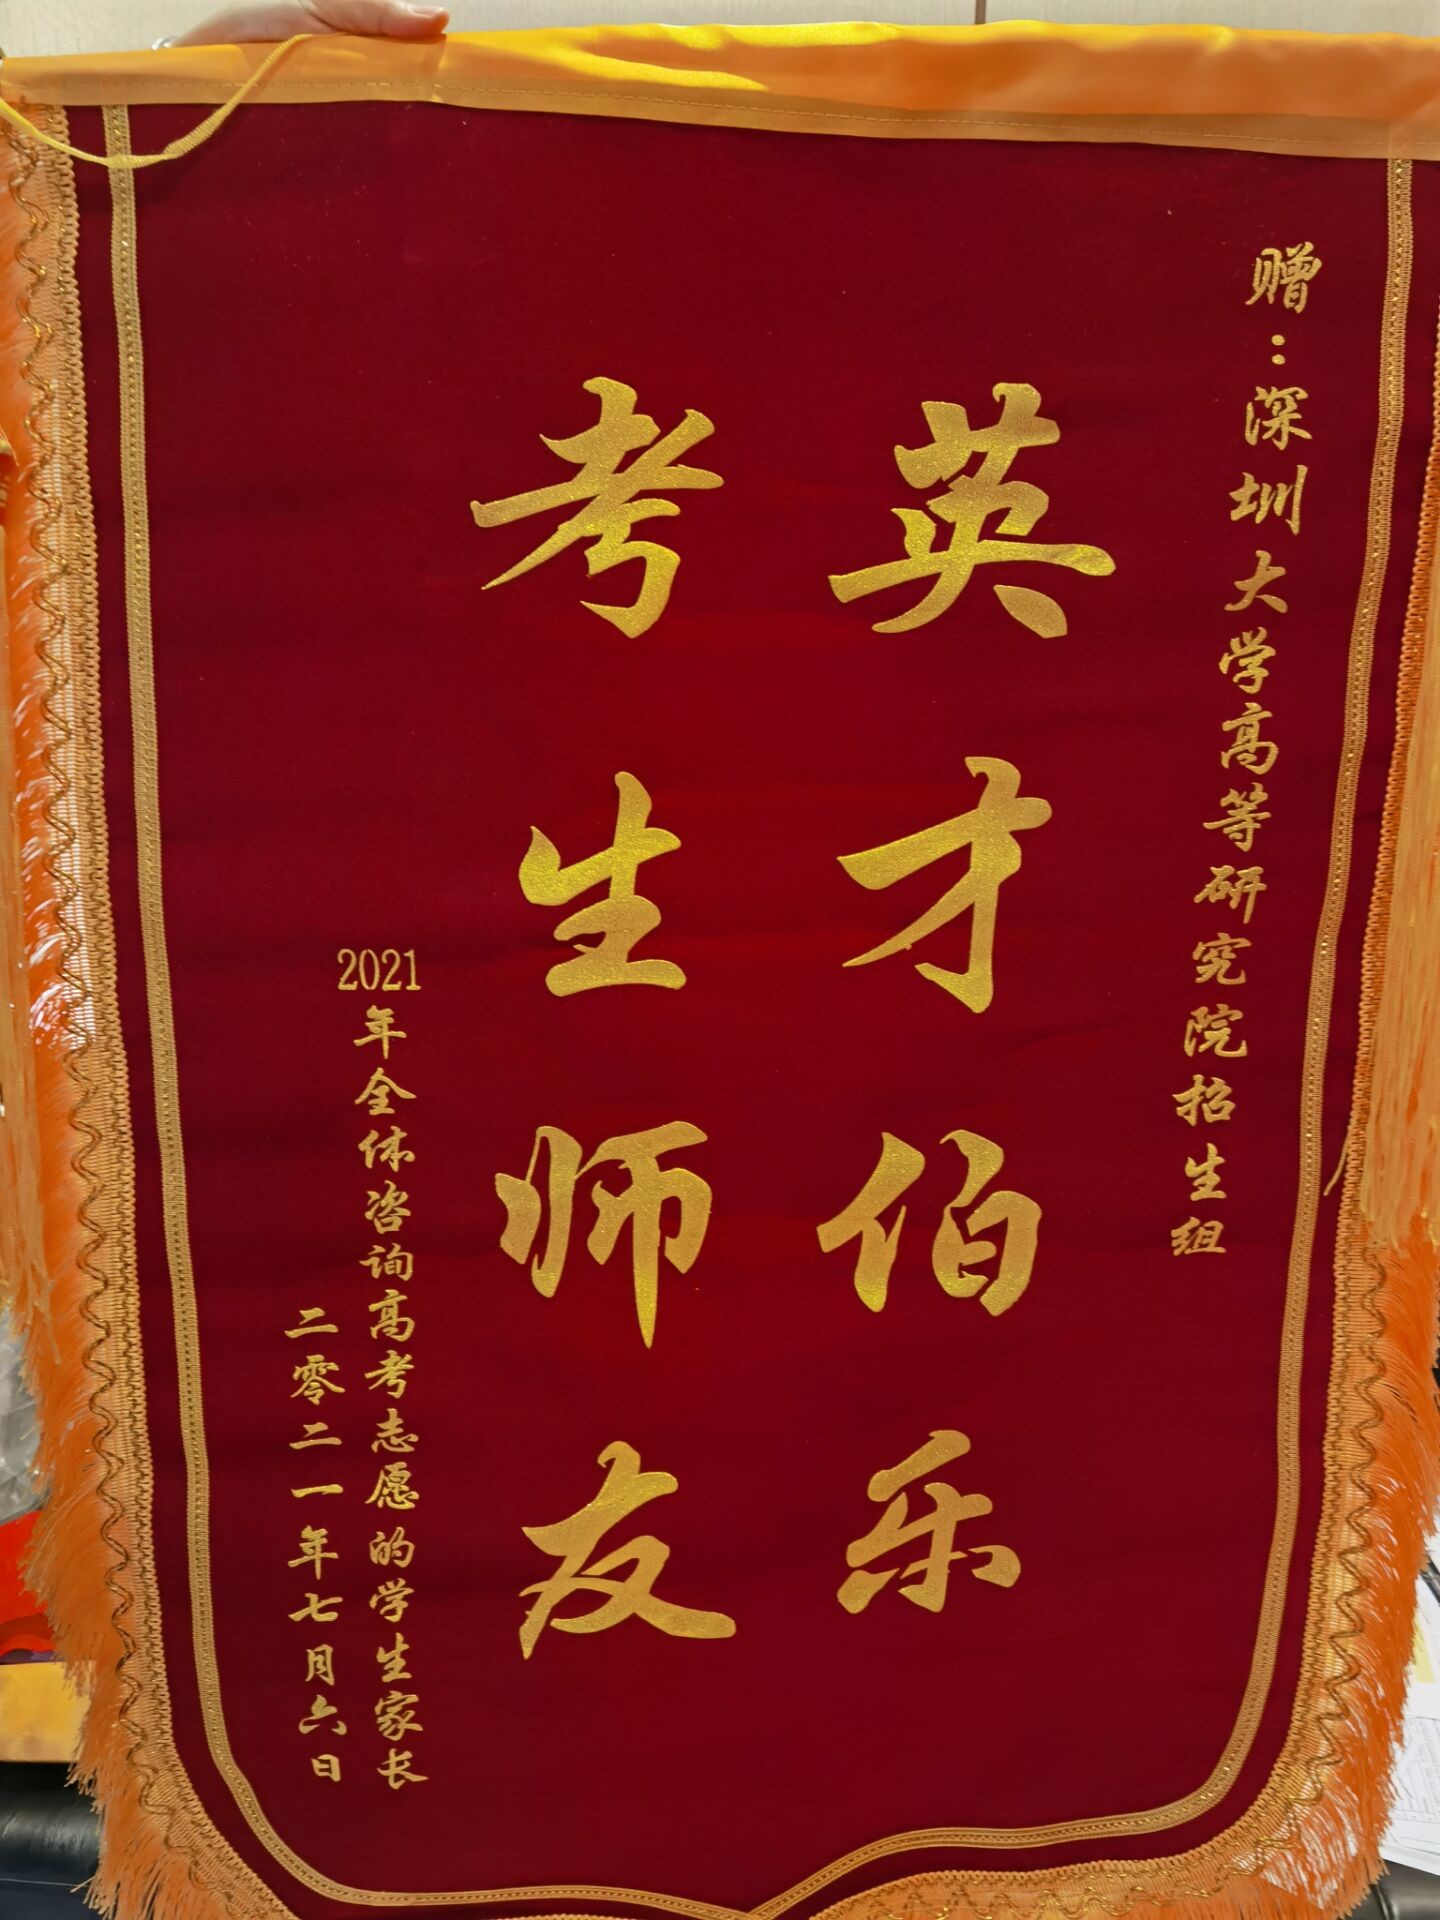 赠：深圳大学高等研究院招生组
英才伯乐
考生师友
2021年全体咨询高考志愿的学生家长
二零二一年七月六日